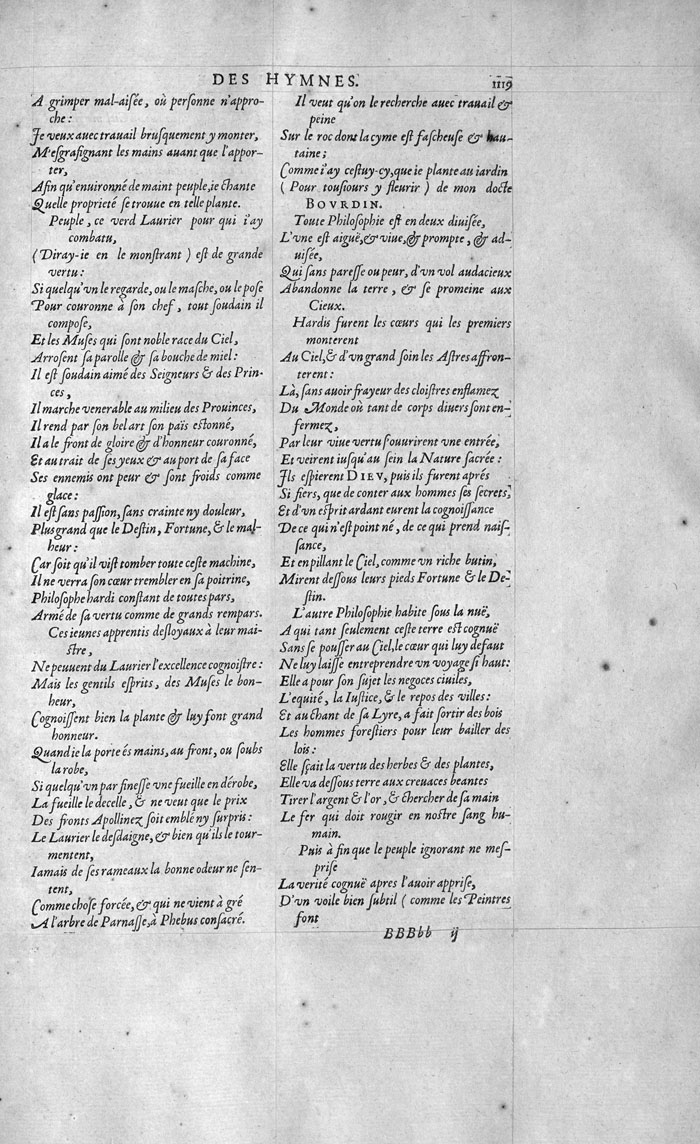 DES HYMNES.
1119
A grimper mal-aisée, où personne n'appro-
che:
Je veux auec trauail brusquement y monter,
M'esgrafignant les mains auant que l'appor-
ter,
Afin qu'enuironné de maint peuple, ie chante
Quelle proprieté se trouue en telle plante.
Peuple, ce verd Laurier pour qui i'ay
combatu,
(Diray-ie en le monstrant) est de grande
vertu:
Si quelqu'vn le regarde, ou le masche, ou le pose
Pour couronne à son chef, tout soudain il
compose,
Et les Muses qui sont noble race du Ciel,
Arrosent sa parolle & sa bouche de miel:
Il est soudain aimé des Seigneurs & des Prin-
ces,
Il marche venerable au milieu des Prouinces,
Il rend par son bel art son païs estonné,
Il a le front de gloire & d'honneur couronné,
Et au trait de ses yeux & au port de sa face
Ses ennemis ont peur & sont froids comme
glace:
Il est sans passion, sans crainte ny douleur,
Plus grand que le Destin, Fortune, & le mal-
heur:
Car soit qu'il vist tomber toute ceste machine,
Il ne verra son cœur trembler en sa poitrine,
Philosophe hardi constant de toutes pars,
Armé de sa vertu comme de grands rempars.
Ces ieunes apprentis desloyaux à leur mai-
stre,
Ne peuuent du Laurier l'excellence cognoistre:
Mais les gentils esprits, des Muses le bon-
heur,
Cognoissent bien la plante & luy font grand
honneur.
Quand ie la porte és mains, au front, ou soubs
la robe,
Si quelqu'vn par finesse vne fueille en dérobe,
La fueille le decelle, & ne veut que le prix
Des fronts Apollinez soit emblé ny surpris:
Le Laurier le desdaigne, & bien qu'ils le tour-
mentent,
Iamais de ses rameaux la bonne odeur ne sen-
tent,
Comme chose forcée, & qui ne vient à gré
A l'arbre de Parnasse, à Phebus consacré.
Il veut qu'on le recherche auec trauail &
peine
Sur le roc dont la cyme est fascheuse & hau-
taine;
Comme i'ay cestuy-cy, que ie plante au iardin
(Pour tousiours y fleurir) de mon docte
BOVRDIN.
Toute Philosophie est en deux diuisée,
L'vne est aiguë, & viue, & prompte, & ad-
uisée,
Qui sans paresse ou peur, d'vn vol audacieux
Abandonne la terre, & se promeine aux
Cieux.
Hardis furent les cœurs qui les premiers
monterent
Au Ciel, & d'vn grand soin les Astres affron-
terent:
Là, sans auoir frayeur des cloistres enflamez
Du Monde où tant de corps diuers sont en-
fermez,
Par leur viue vertu s'ouurirent vne entrée,
Et veirent iusqu'au sein la Nature sacrée:
Ils espierent DIEV, puis ils furent aprés
Si fiers, que de conter aux hommes ses secrets,
Et d'vn esprit ardant eurent la cognoissance
De ce qui n'est point né, de ce qui prend nais-
sance,
Et en pillant le Ciel, comme vn riche butin,
Mirent dessous leurs pieds Fortune & le De-
stin.
L'autre Philosophie habite sous la nuë,
A qui tant seulement ceste terre est cognuë
Sans se pousser au Ciel, le cœur qui luy defaut
Ne luy laisse entreprendre vn voyage si haut:
Elle a pour son sujet les negoces ciuiles,
L'equité, la Iustice, & le repos des villes:
Et au chant de sa Lyre, a fait sortir des bois
Les hommes forestiers pour leur bailler des
lois:
Elle sçait la vertu des herbes & des plantes,
Elle va dessous terre aux creuaces beantes
Tirer l'argent & l'or, & chercher de sa main
Le fer qui doit rougir en nostre sang hu-
main.
Puis à fin que le peuple ignorant ne mes-
prise
La verité cognuë apres l'auoir apprise,
D'vn voile bien subtil (comme les Peintres
font
BBBbb ij